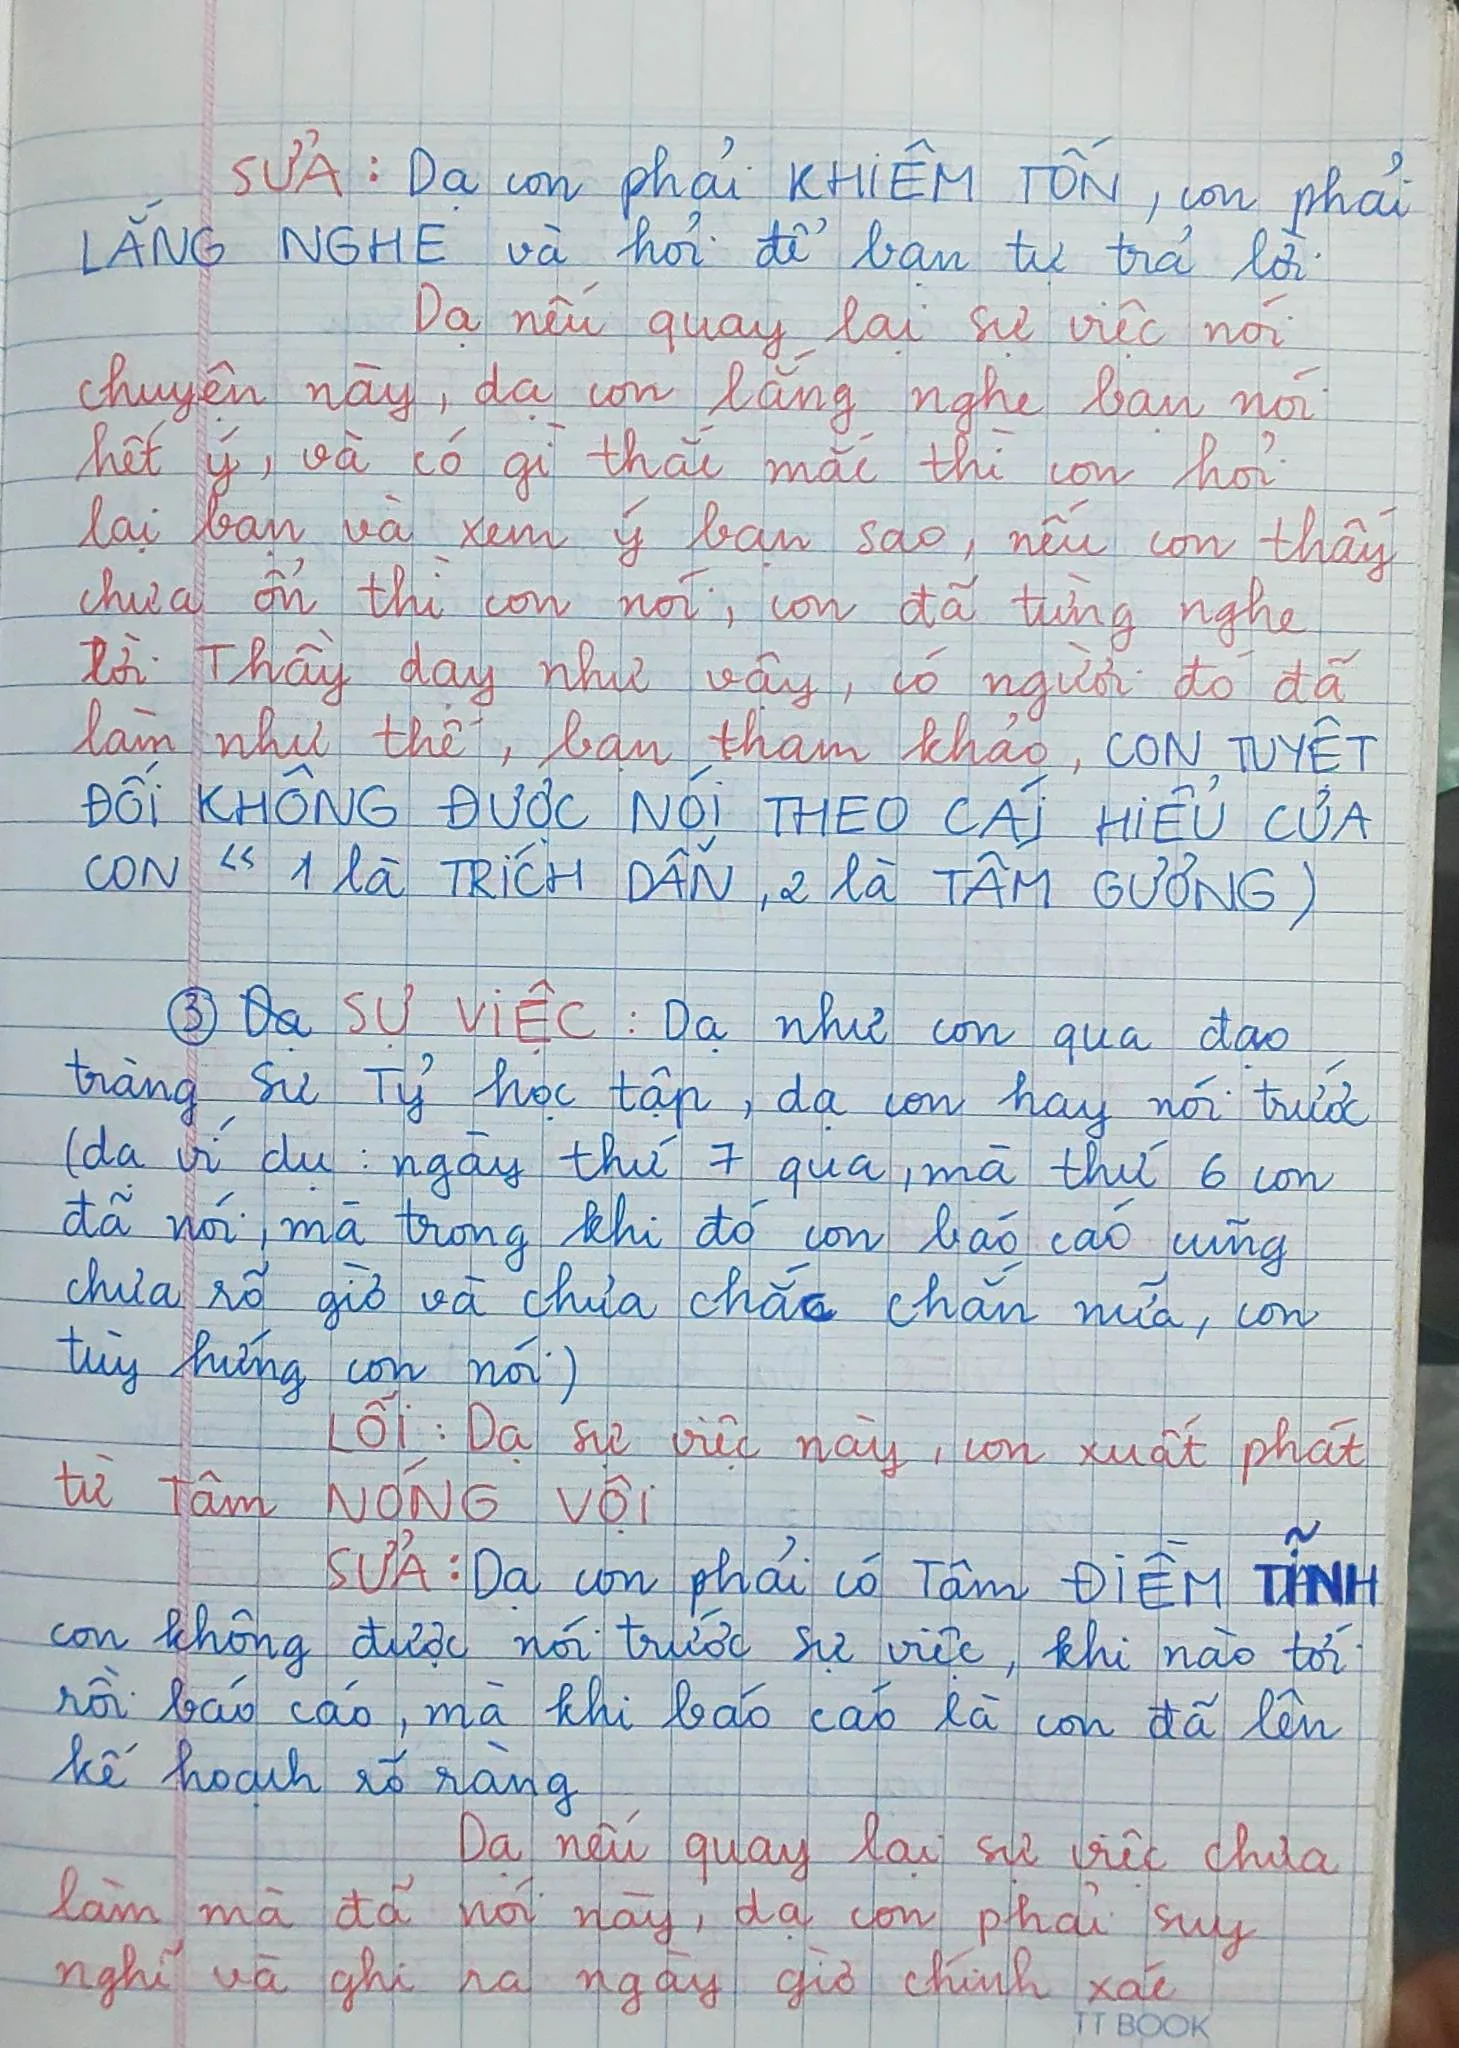 SỬA : Dạ con phải KHIÊM TỐN, con phải
LẮNG NGHE và hỏi để bạn tự trả lời.
Dạ nếu quay lại sự việc nói
chuyện này, dạ con lắng nghe bạn nói
hết ý, và có gì thắc mắc thì con hỏi
lại bạn và xem ý bạn sao, nếu con thấy
chưa ổn thì con nói, con đã từng nghe
lời Thầy dạy như vậy, có người đó đã
làm như thế, bạn tham khảo, CON TUYỆT
ĐỐI KHÔNG ĐƯỢC NÓI THEO CÁI HIỂU CỦA
CON " 1 là TRÍCH DẪN, 2 là TẤM GƯƠNG )
③ Dạ SỰ VIỆC : Dạ như con qua đạo
tràng Sư Tỷ học tập, dạ con hay nói trước
(dạ ví dụ : ngày thứ 7 qua, mà thứ 6 con
đã nói, mà trong khi đó con báo cáo cũng
chưa rõ giờ và chưa chắc chắn nữa, con
tùy hứng con nói)
LỖI : Dạ sự việc này, con xuất phát
từ Tâm NÓNG VỘI
SỬA : Dạ con phải có Tâm ĐIỀM TĨNH
con không được nói trước sự việc, khi nào tới
rồi báo cáo, mà khi báo cáo là con đã lên
kế hoạch rõ ràng
Dạ nếu quay lại sự việc chưa
làm mà đã nói này, dạ con phải suy
nghĩ và ghi ra ngày giờ chính xác
TT BOOK